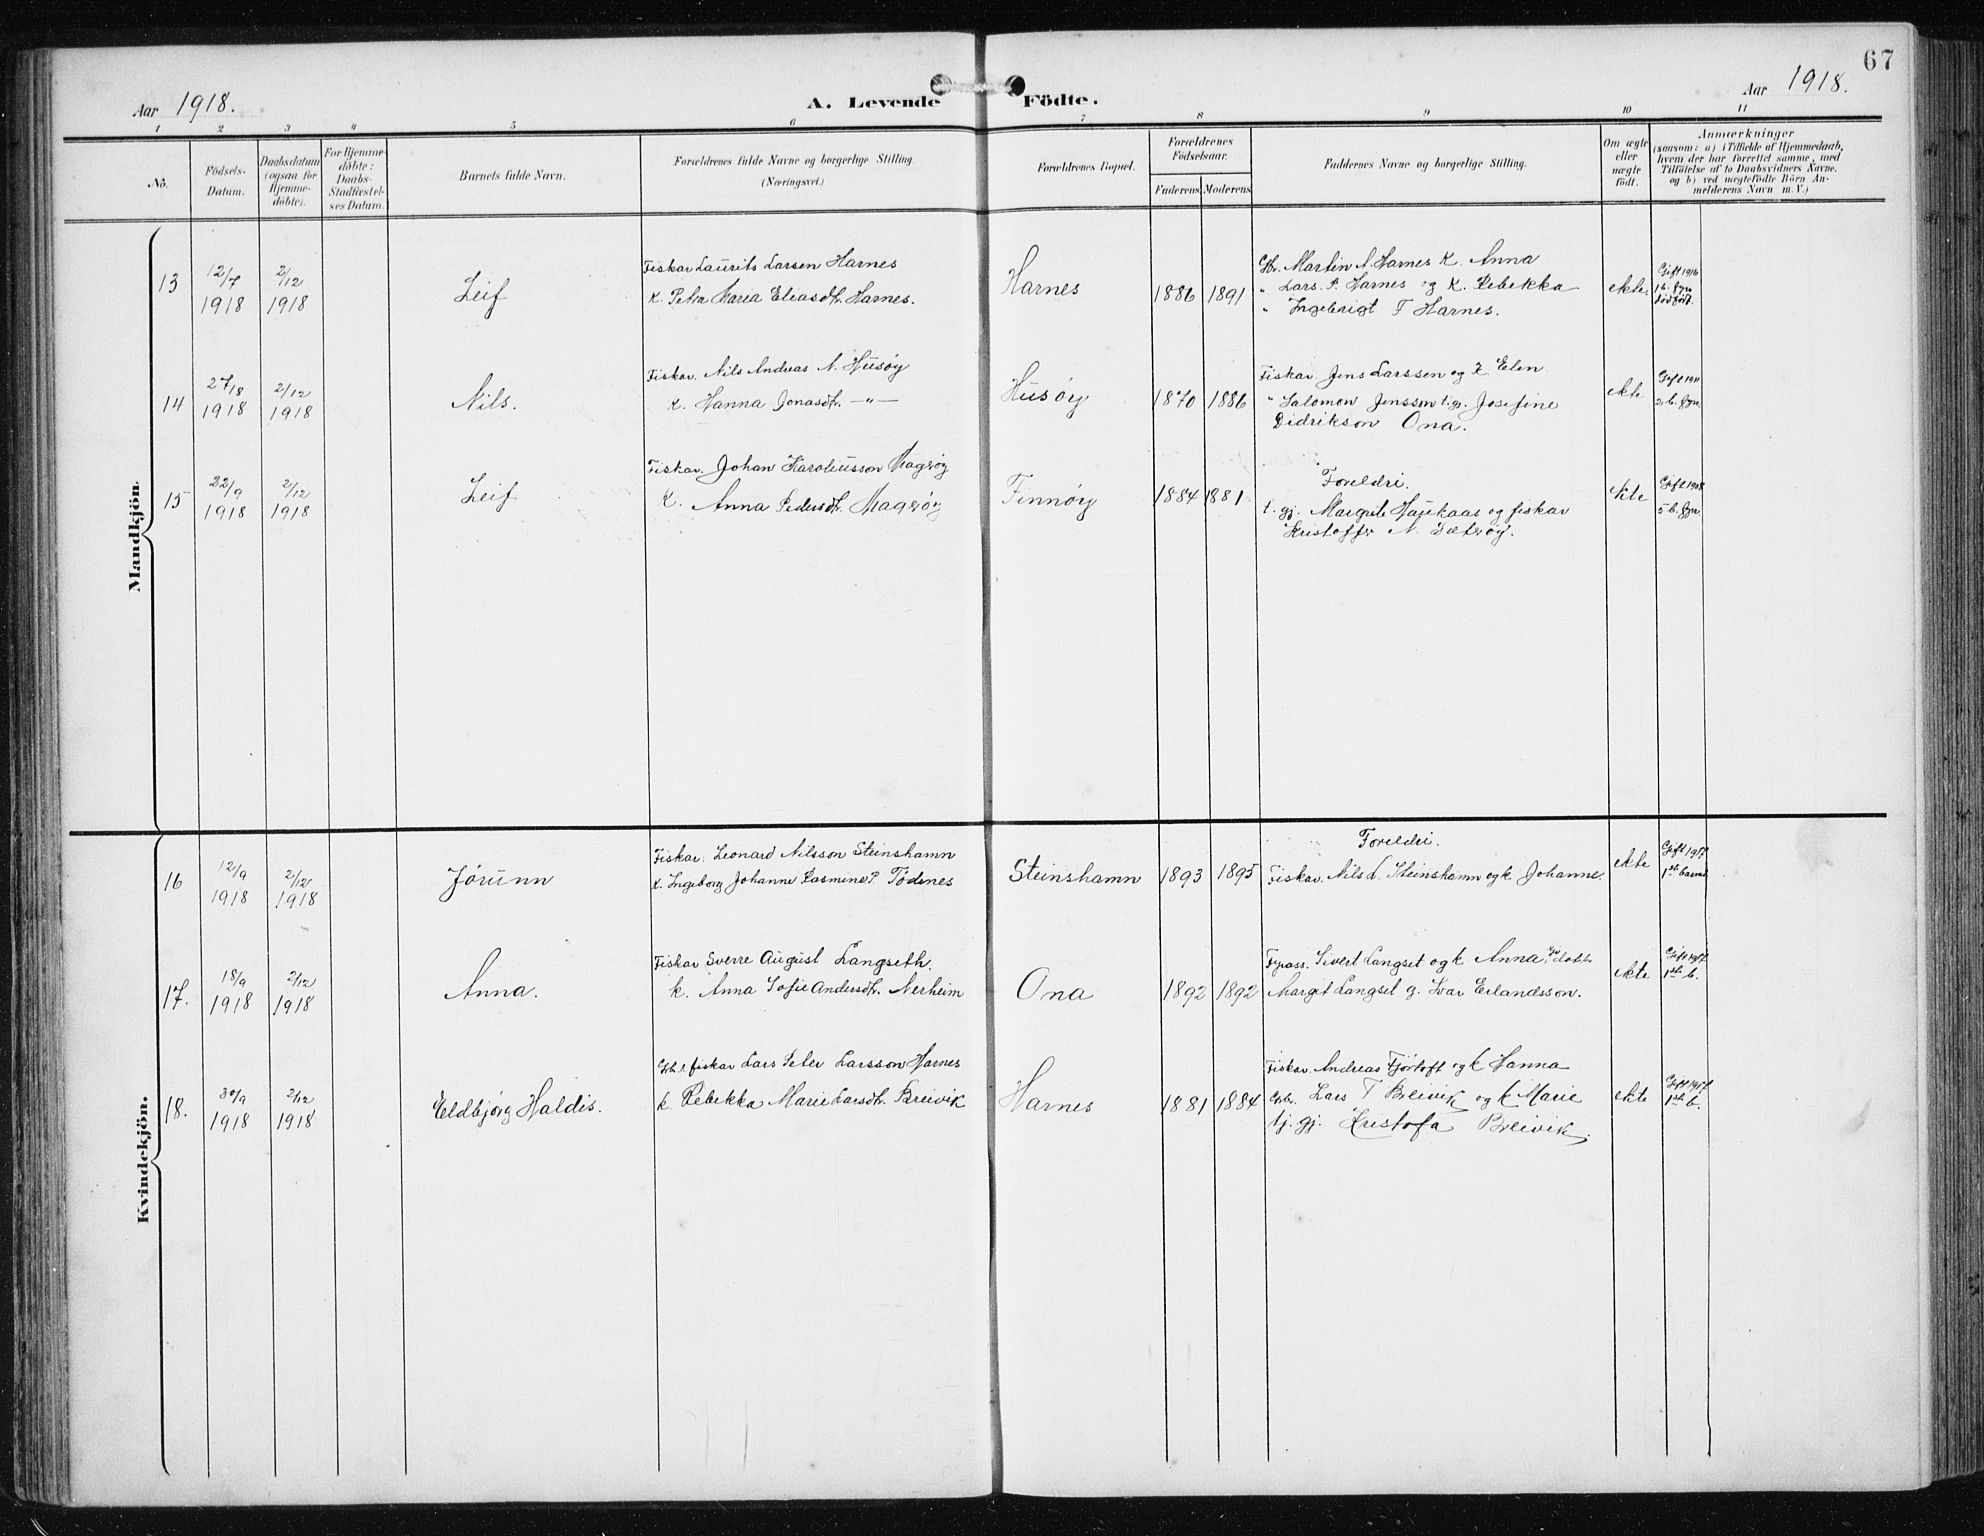 67
Aar 1918.
A. Levende Födte.
Aar 1918.
1 2 3 4 5 6 7 8 9 10 11
No.
Födsels-
Datum.
Daabsdatum
(ogsaa for
Hjemme-
döbte).
For Hjemme-
döbte:
Daabs-
Stadfæstel-
ses Datum.
Barnets fulde Navn.
Forældrenes fulde Navne og borgerlige Stilling
(Næringsvei.)
Forældrenes Bopæl.
Forældrenes
Födselsaar.
Faderens Moderens
Faddernes Navne og borgerlige Stilling.
Om ægte
eller
uægte
födt.
Anmærkninger
(saasom: a) i Tilfælde af Hjemmedaab,
hvem der har forrettet samme, med
Tilföielse af to Daabsvidners Navne,
og b) ved uægtefödte Börn An-
melderens Navn m. V.)
Mandkjön.
13
12/7
1918
2/12
1918
Leif
Fiskar Laurits Larsen Harnes
K. Petra Maria Eliasdt. Harnes.
Harnes
1886 1891
Gbr. Martin N. Harnes K. Anna
" Lars P. Harnes og K. Rebekka
" Ingebrigt T Harnes.
ekte.
Gift 1916
1 b. fyr
dödfött.
14
27/8
1918
2/12
1918
Nils.
Fiskar. Nils Andreas N. Husöy
K. Hanna Jonasdt. —"—
Husöy
1870 1886
Fiskar Jens Larssen og K Elen
" Salomon Jensson t.gj. Josefine
Didrikson Ona.
ekte
Gift 1911
2 b. fyr.
15
22/9
1918
2/12
1918
Leif
Fiskar. Johan Karoliusson Mageöy
K. Anna Pedersdt. Mageöy
Finnöy
1884 1881
Foreldri.
t. gj. Margrete Haukaas og fiskar
Kristoffer N. Sætröy.
ekte
Gift 1908
5 b. fyr
Kvindekjön.
16
12/9
1918
2/12
1918
Jörunn
Fiskar. Leonard Nilsson Steinshamn
K. Ingeborg Johanne Rasmine P. Tödenes
Steinshamn
1893 1895
Foreldri.
Fiskar. Nils L. Steinshamn og k Johanne.
ekte
Gift 1917
1ste barnet
17.
18/9
1918
2/12
1918
Anna.
Fiskar Sverre August Langseth.
K. Anna Sofie Andersdt. Nerheim
Ona
1892 1892
Fyrass. Sivert Langset og k Anna
Margit Langset g. Ivar Erlandsson.
ekte
Gift 1917
1ste b.
18.
30/9
1918
2/12
1918
Eldbjörg Haldis.
Gbr. fiskar Lars Peter Larsson Harnes
K. Rebekka Marie Larsdt. Breivik
Harnes
1881 1884
Fiskar. Andreas Fjörtoft og K Hanna
Gbr. Lars T Breivik og k Marie
tj. gj. Kristofa Breivik.
ekte
Gift 1917
1ste b.